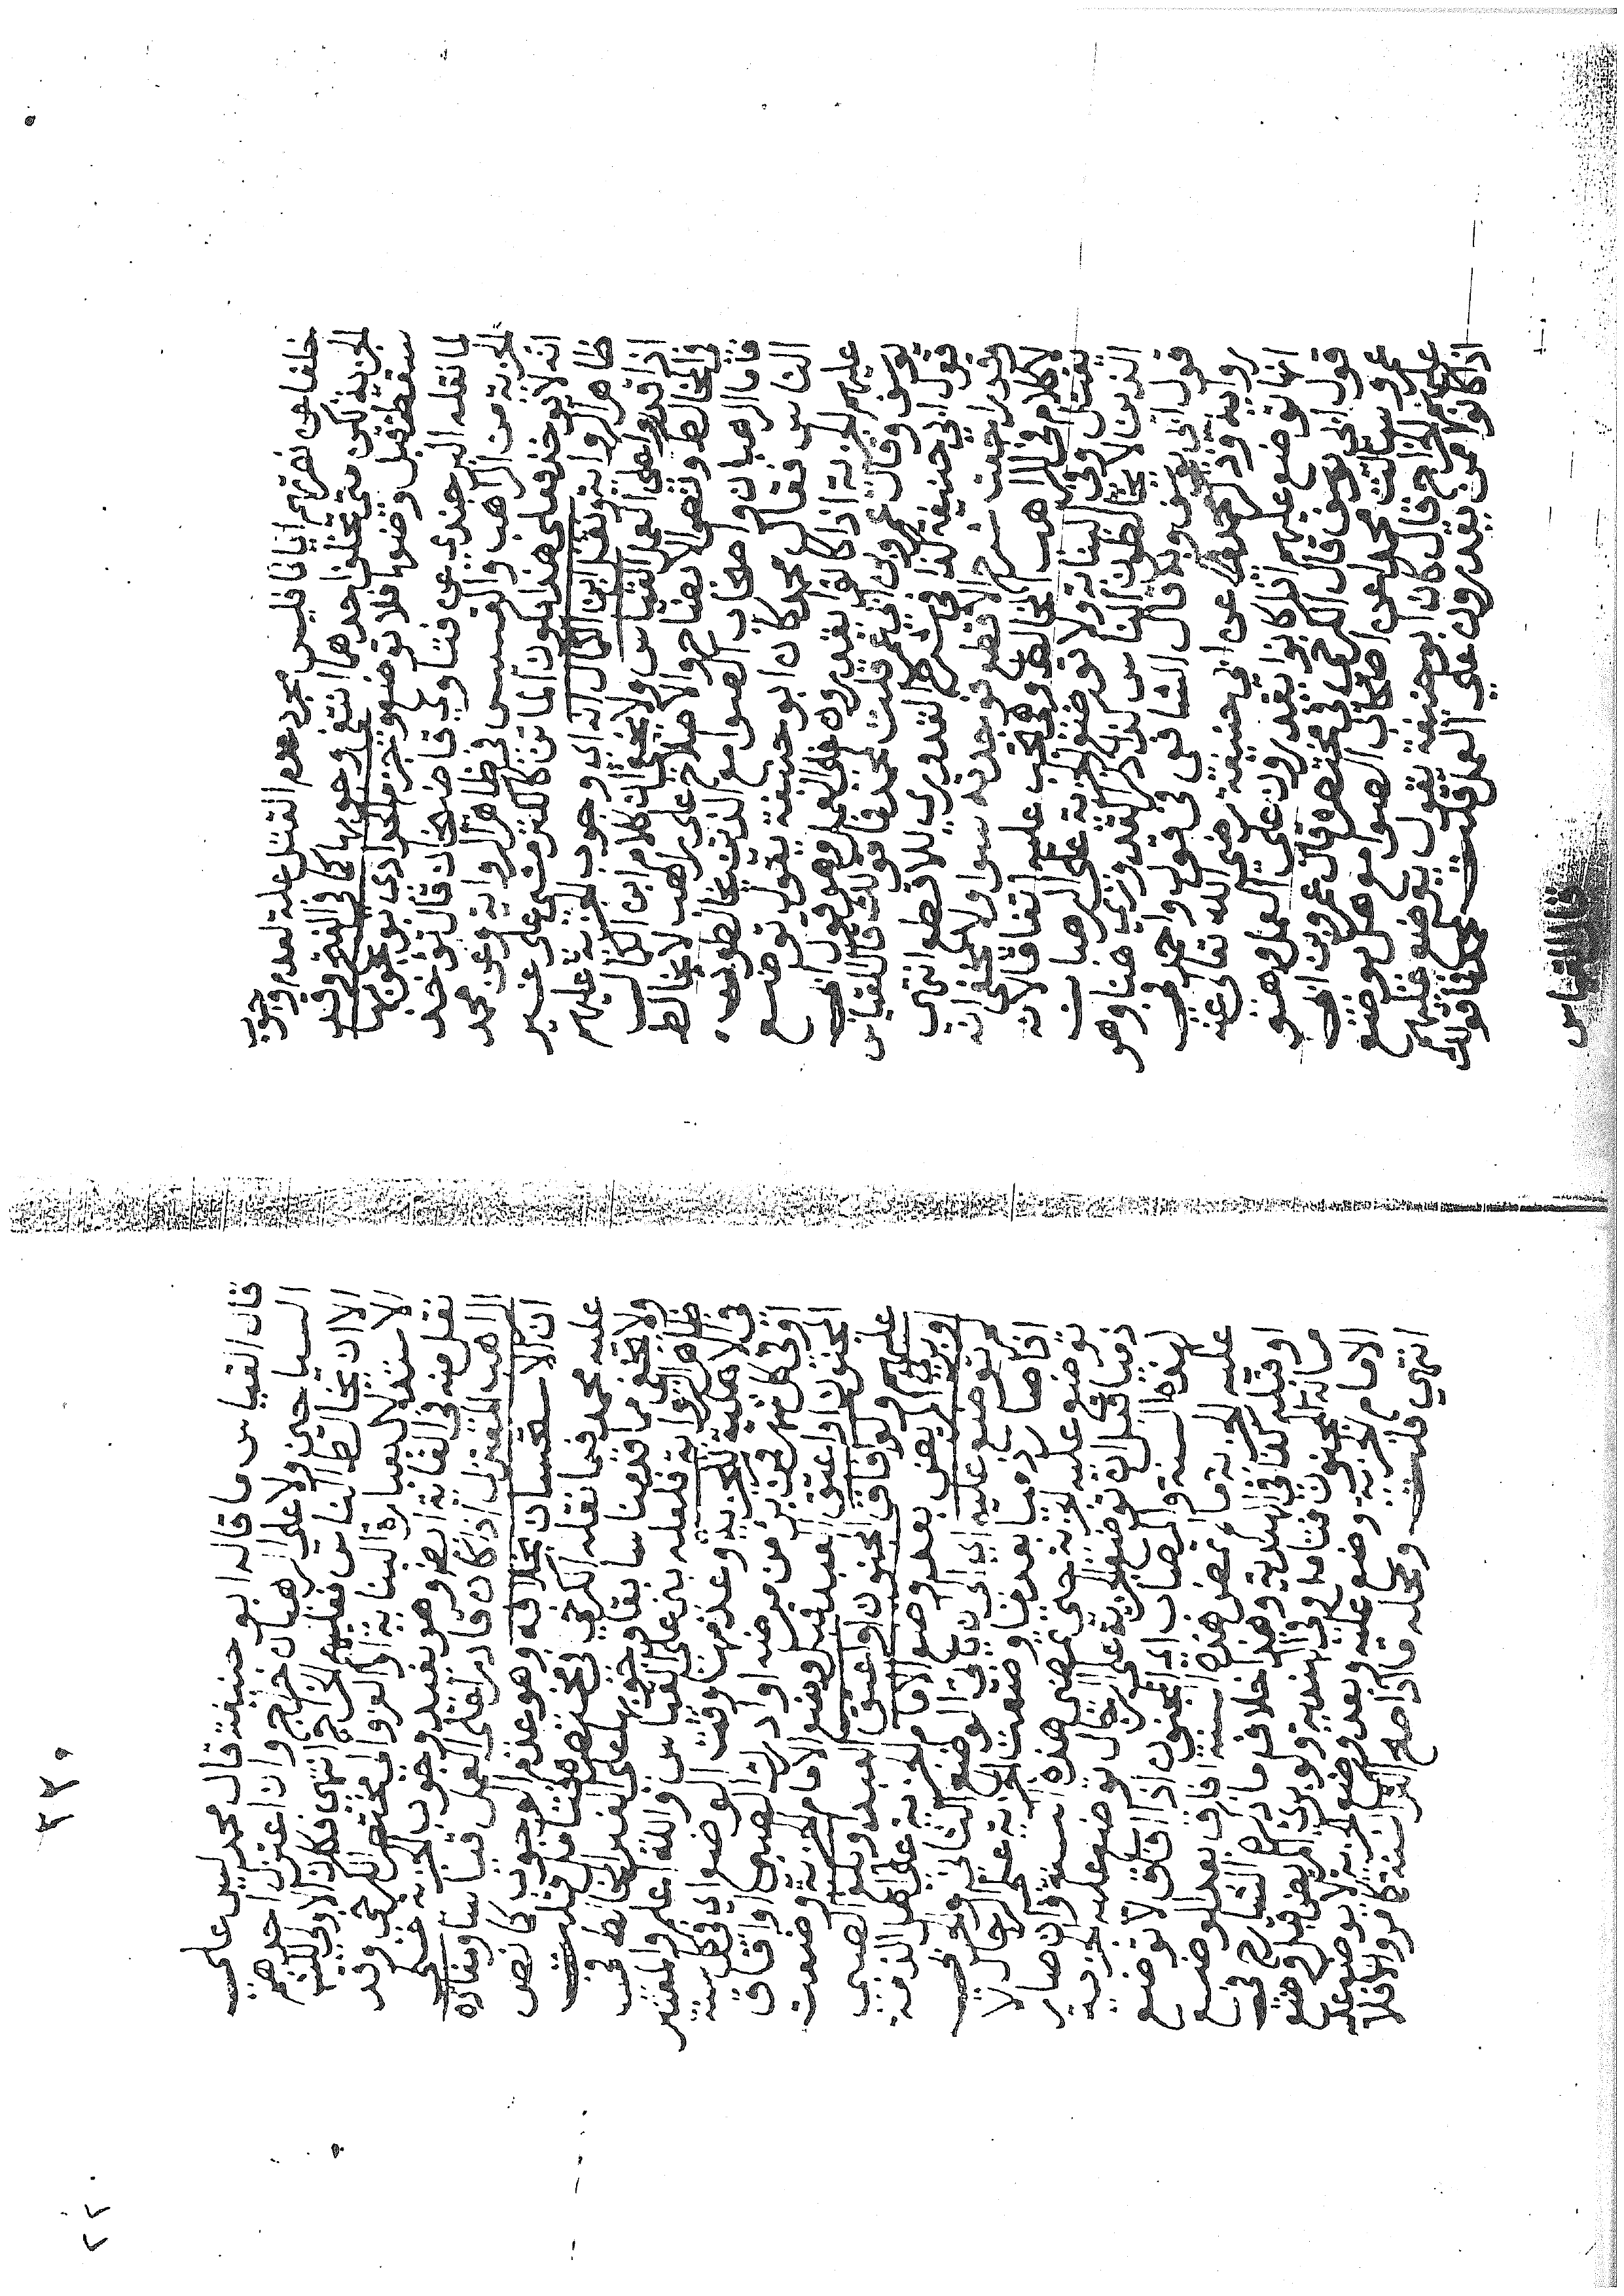 خلفا عن نصرتهم ايانا فليس مجرد عدم القتل علة لعدم وجوب
الجزية لكن متى تخلف احدهما انتفى وجوبها كما في الفتح وقد
سقط قبل وضعها فلا توضع
لما نقله البرجندي عن فتاوي قاضيخان قال توخذ
الجزية من الراهب والقسيس في ظاهر الرواية وعن محمد
انه لا يوخذ فعلى هذا يكون الماتن كالكنز مشي على غير
ظاهر الرواية ونقل ابن الكمال انه اي وجوب الجزية عليهم
اذا قدروا على العمل القياس ولا يخفى ان كلام ابن الكمال
في المخالط ونصه الايضاح ولا على راهب لا يخالط
الرهبان واصحاب الصوامع الذين يخالطون
الناس فقال محمد كان ابو حنيفة يقول توضع
عليهم الجزية اذا كانوا يقدرون على العمل وهو قول ابي
يوسف وقال عمرو بن ابي عمرو قلت لمحمد فما قولك قال القياس
قول ابي حنيفة كذا في شرح القدوري للاقطع انتهى
وقد راجعت شرح الاقطع فوجدته سوا ولا يخفى انه
لا كلام في الراهب المخالط وهل تجب عليه اتفاقا لانه
يقتل وفي البناية ولا توضع الجزية على الرهبان
الذين لا يخالطون الناس كذا ذكر القدوري هنا وهو
قول ابي يوسف وبه قال الشافعي في قول واحمد في
رواية وذكر محمد عن ابي حنيفة رضي الله تعالى عنه
انها توضع عليهم اذا كانوا يقدرون على العمل وهو
قول ابي يوسف قال الكرخي في مختصره قال عمرو بن ابي
عمرو سالت محمدا عن اصحاب الصوامع هل يوضع
عليهم الخراج قال كان ابو حنيفة يقول يوضع عليهم
اذا كانوا ممن يقدرون على العمل قلت لمحمد فما قولك
قال القياس
٢٢٠
قال القياس ما قاله ابو حنيفة قال محمد ليس على
السياحين ولا على الرهبان خراج وان اعتزل احدهم
الا ان يخالط الناس فعليهم الخراج انتهى فكان الاولى
الاستدلال بعبارة البناية او العزو الى مختصر الكرخي وقد
نقل عنه في الغاية ايضا وهو يفيد وجوب الجزية على
الراهب المعتزل اذا كان قادرا على العمل قياسا ومفاده
ان الاستحسان بخلافه وهو عدم الوجوب كما نص
عليه محمد فيما نقله الكرخي في مختصره فتامل قلت
ولا يخفى ما قدمنا سابقا وجوبها على الغير المخالط في
ظاهر الرواية فلعله بني على القياس والله اعلم والمعتبر
في الاهلية للجزية وعدمها وقت الوضع اي في كل سنة
من برئ من مرضه او ادرك الصبي او افاق
المجنون او اعتق العبد قبل وضع الامام الجزية وضعت
عليهم ولو افاق المجنون او اعتق العبد وبلغ الصبي
وبرئ المريض بعد وضع الامام الجزية على اهل الذمة
لم توضع عليه اي الى ان ياتي الوضع الثاني
اذا صار ذميا بعد ما وضعت الجزية على الرجال لا
توضع عليه الجزية حتى تمضي هذه السنة وان صار
ذميا قبل ان توضع الجزية على الرجال توضع عليه الجزية
لهذه السنة والمصاب اي المجنون اذا افاق لا توضع
عليه الجزية ما لم تمض هذه السنة افاق بعد الوضع
او قبله كذا في الهندية وهذا خلاف ما ذكره الشارح في
مسالة المجنون فتامل وفي الهندية ولو برئ المريض قبل وضع
الامام الجزية وضع عليه وبعد وضع الجزية لا يوضع عليه
انتهى قلت ومحله ما اذا صح اكثر السنة كما مر والا فلا